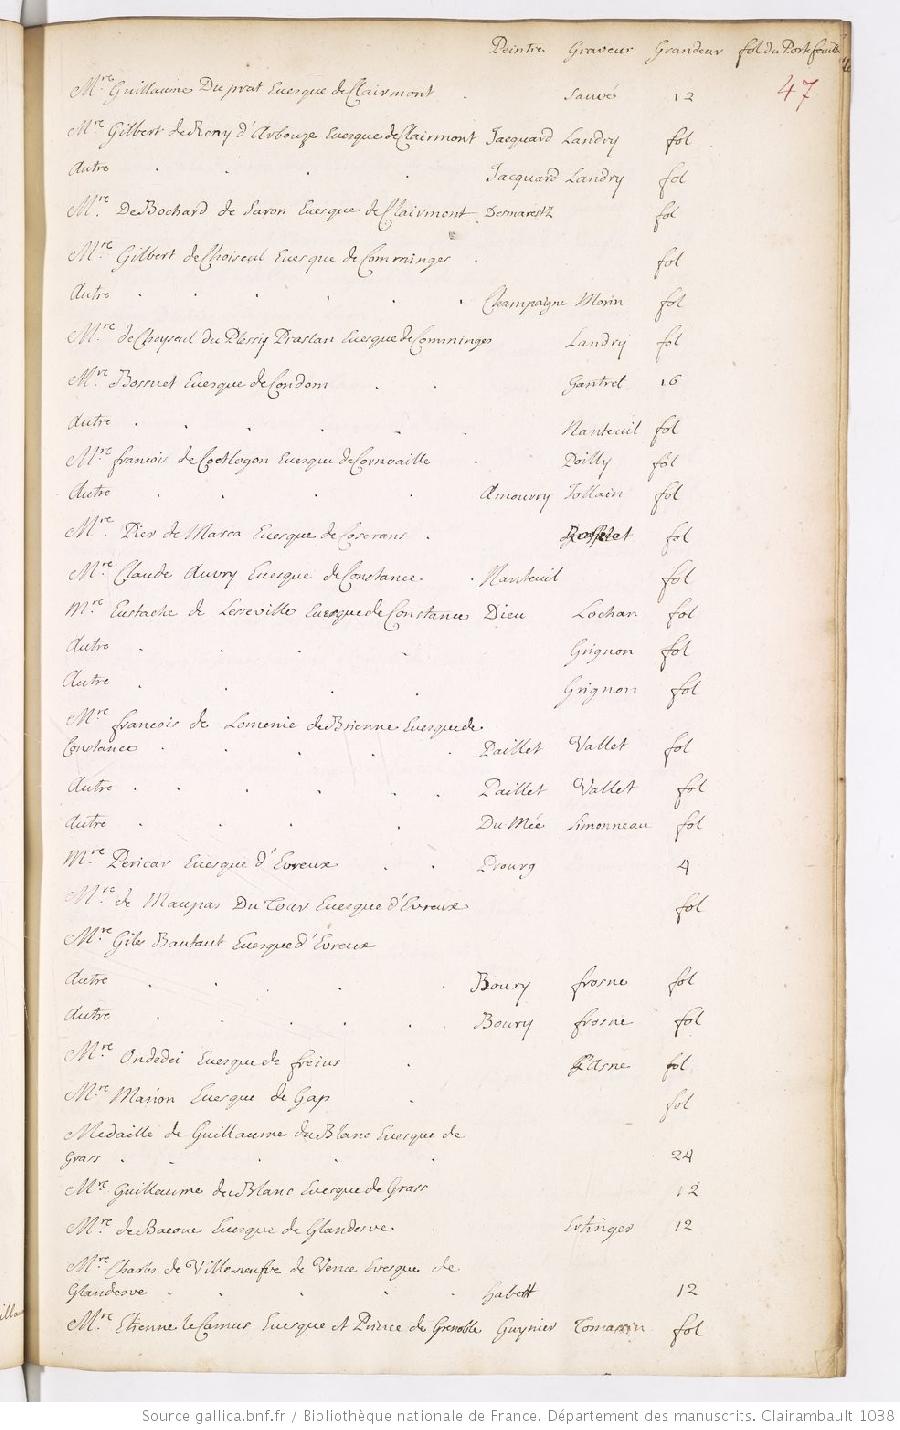 Peintre Graveur Grandeur fol du Portefeuille
47
Mre Guillaume Du prat Euesque de Clairmont . Sauvé 12
Mre Gilbert de Veny d'Arbouze Euesque de Clairmont Jacquard Landry fol
Autre . . . Jacquard Landry fol
Mre De Bochard de Saron Euesque de Clairmont . Desmarestz fol
Mre Gilbert de Choiseul Euesque de Comminges . fol
Autre . . . . . Champaigne Morin fol
Mre de Choyseul du Plessy Praslan Euesque de Comminges Landry fol
Mre Bossuet Euesque de Condom . . Gantrel 16
Autre . . . . . Nanteuil fol
Mre francois de Coetlogon Euesque de Cornoaille . Poilly fol
Autre . . . . Amourry Jollain fol
Mre Pier de Marca Euesque de Coserans . fol
Mre Claude Auvry Euesque de Constance . . Nanteuil fol
Mre Eustache de Leseville Euesque de Constance Dieu Lochan fol
Autre . . . Grignon fol
Autre . . . . Grignon fol
Mre francois de Lomenie de Brienne Euesque de
Constance . . . . . Paillet Vallet fol
Autre . . . . . . Paillet Vallet fol
Autre . . . . Du Mée Simonneau fol
Mre Pericar Euesque d'Evreux . . Drourg 4
Mre de Maupas Du Tour Euesque d'Evreux fol
Mre Giles Boutaut Euesque d'Evreux
Autre . . . . . Boury frosne fol
Autre . . . . Boury frosne fol
Mre Ondedei Euesque de freius . fol
Mre Marion Euesque de Gap . fol
Medaille de Guillaume du Blanc Euesque de
Grass . . . . 24
Mre Guillaume du Blanc Euesque de Grass 12
Mre de Bacoue Euesque de Glandesve . Ertinger 12
Mre Charles de Villeneufve de Vence Evesque de
Glandesve . . . . . Habert 12
Mre Etienne le Camus Euesque et Prince de Grenoble Guynier Tomassin fol
Source gallica.bnf.fr / Bibliothèque nationale de France. Département des manuscrits. Clairambault 1038